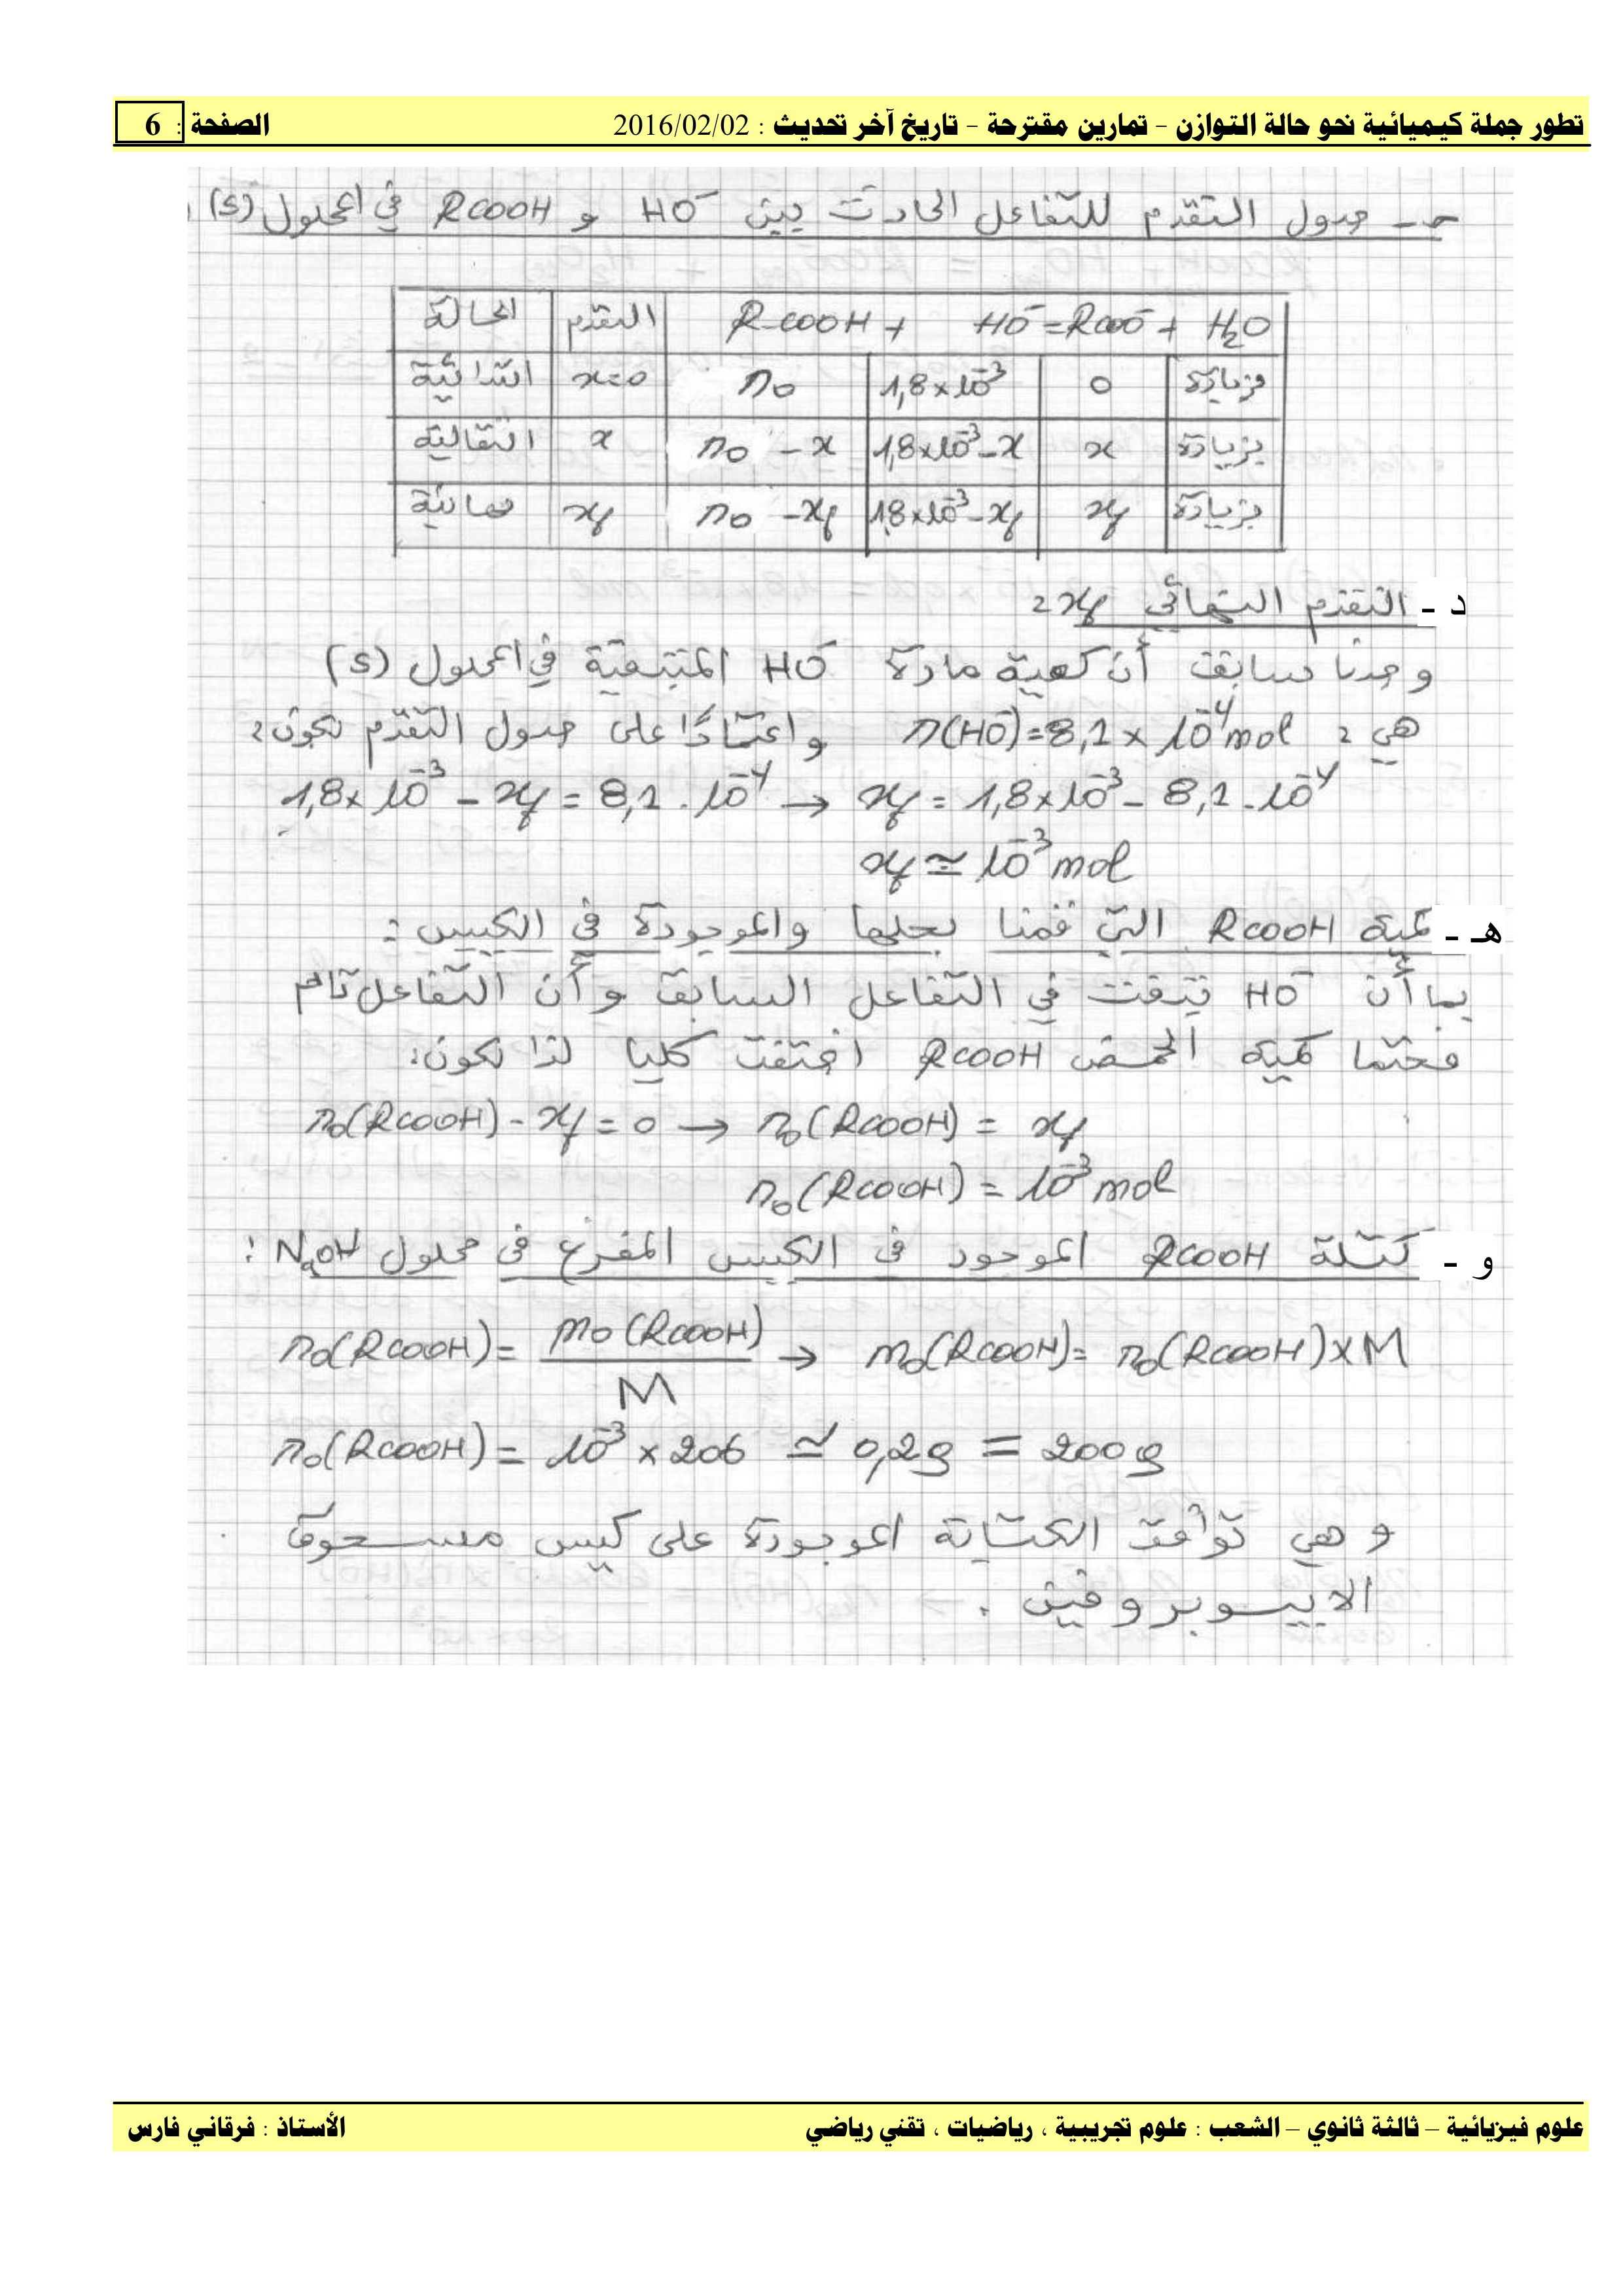 تطور جملة كيميائية نحو حالة التوازن – تمارين مقترحة – تاريخ آخر تحديث : 2016/02/02 الصفحة : 6
جـ - جدول التقدم للتفاعل الحادث بين HO⁻ و RCOOH في المحلول (S)
الحالة | التقدم | R-COOH + HO⁻ = RCOO⁻ + H₂O
ابتدائية | x=0 | n₀ | 1,8×10⁻³ | 0 | بزيادة
انتقالية | x | n₀ - x | 1,8×10⁻³-x | x | بزيادة
نهائية | xf | n₀ - xf | 1,8×10⁻³-xf | xf | بزيادة
د - التقدم النهائي xf :
وجدنا سابقا أن كمية مادة HO⁻ المتبقية في المحلول (S)
هي : n(HO⁻)=8,1×10⁻⁴mol و اعتمادًا على جدول التقدم يكون :
1,8×10⁻³ - xf = 8,1.10⁻⁴ → xf = 1,8×10⁻³ - 8,1.10⁻⁴
xf ≃ 10⁻³ mol
هـ - كمية RCOOH التي قمنا بحلها والموجودة في الكيس :
بما أن HO⁻ تبقت في التفاعل السابق و أن التفاعل تام
فحتما كمية الحمض RCOOH اختفت كليا لذا يكون :
n₀(RCOOH) - xf = 0 → n₀(RCOOH) = xf
n₀(RCOOH) = 10⁻³ mol
و - كتلة RCOOH الموجود في الكيس المفرغ في محلول NaOH :
n₀(RCOOH) = m₀(RCOOH)/M → m₀(RCOOH) = n₀(RCOOH)×M
n₀(RCOOH) = 10⁻³ × 206 ≃ 0,2g = 200g
و هي توافق الكتابة الموجودة على كيس مسحوق
الايبوبروفين .
علوم فيزيائية – ثالثة ثانوي – الشعب : علوم تجريبية ، رياضيات ، تقني رياضي الأستاذ : فرقاني فارس